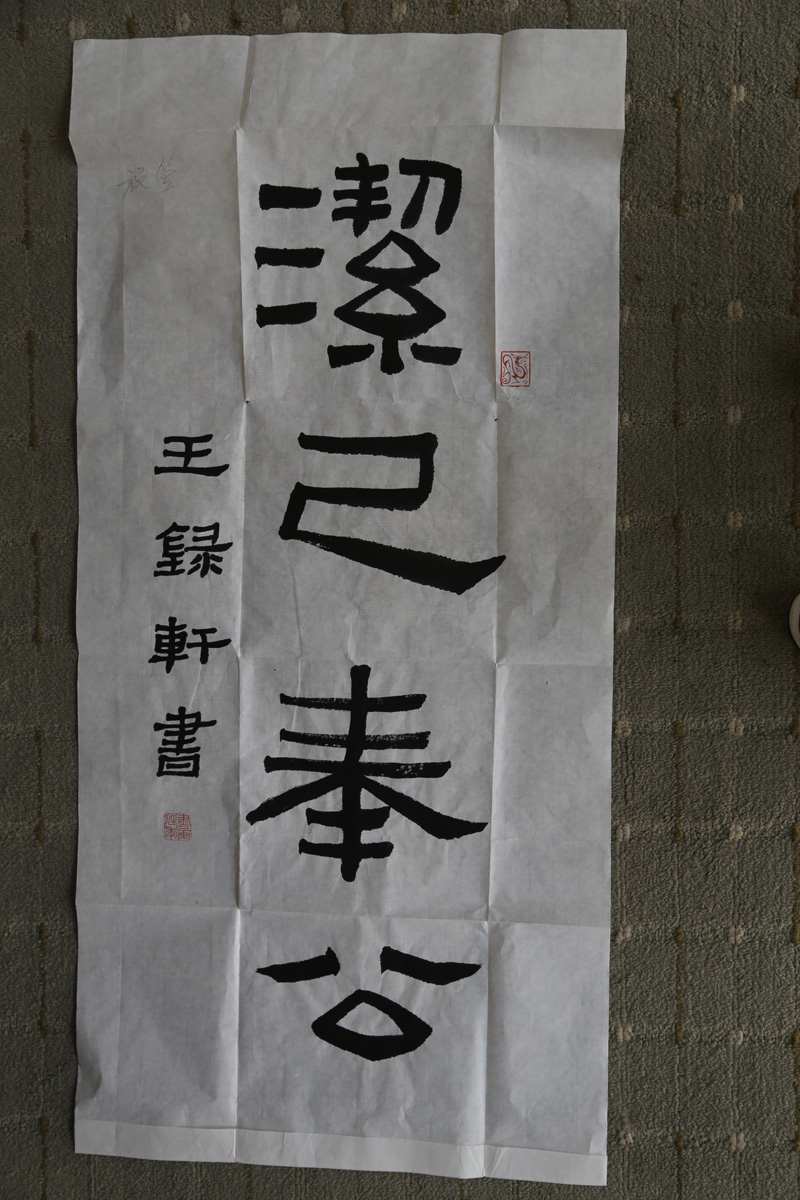 潔己奉公
王録軒書